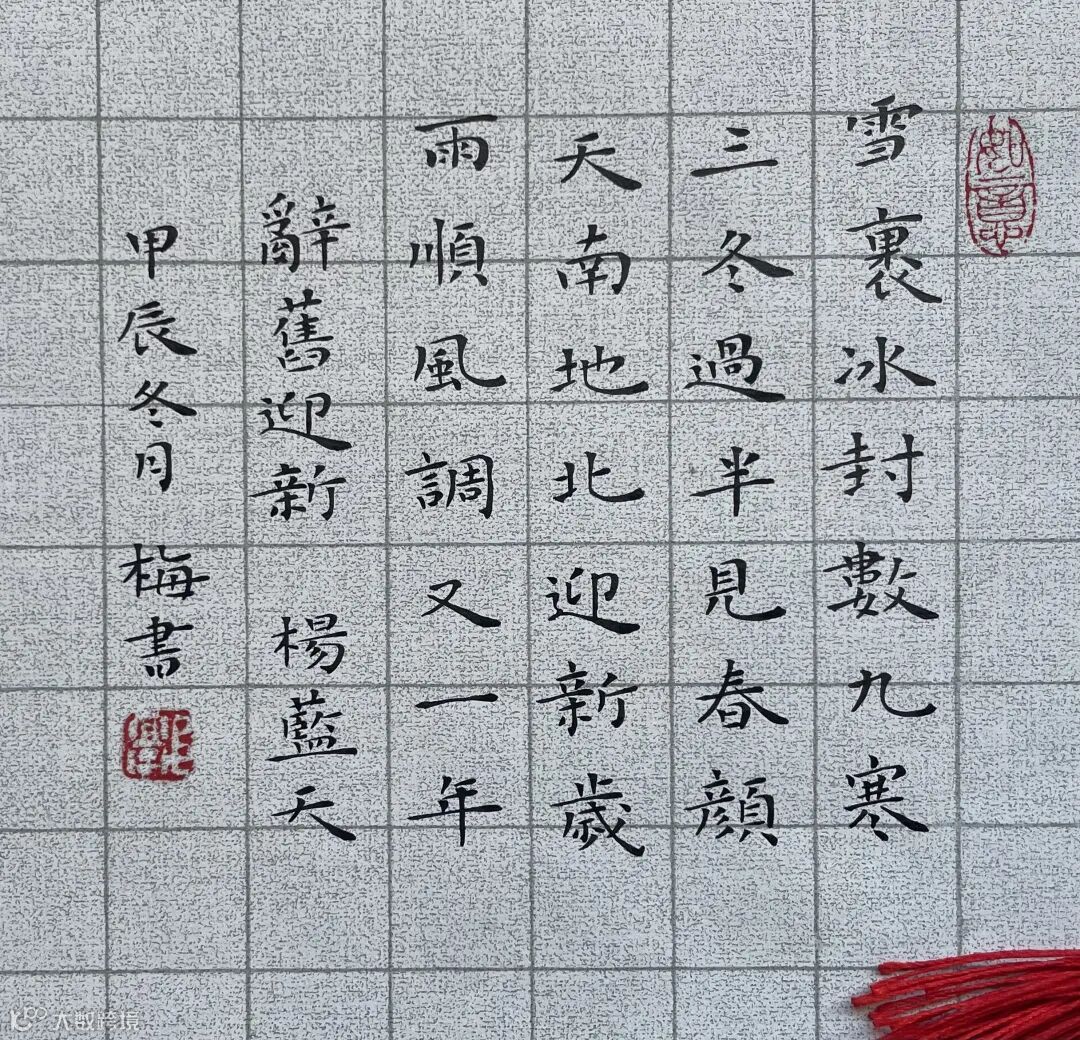 如意
雪裹冰封數九寒
三冬過半見春顏
天南地北迎新歲
雨順風調又一年
辭舊迎新 楊藍天
甲辰冬月 梅書
大数跨境